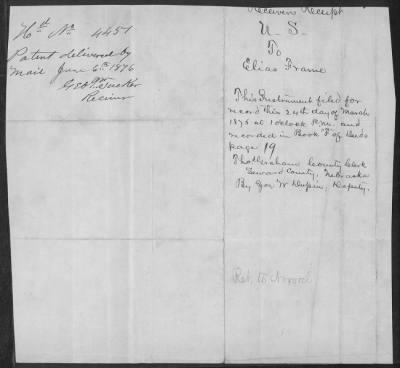 Hd No 4451
Patent delivered by
Mail June 6th 1876
Receiver
Receivers Receipt
U - S -
To
Elias Frame
This Instrument filed for
record this 24th day of March
1875 at 1 oclock P.M. and
recorded in Book F of Deeds
page 19
County Clerk
Seward County, Nebraska
By Geo W Deputy.
Ret. to